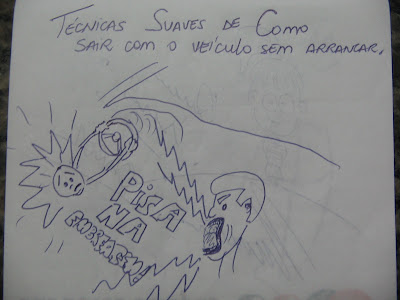 TÉCNICAS SUAVES DE COMO
SAIR COM O VEÍCULO SEM ARRANCAR.
PISA
NA
EMBREAGEM!